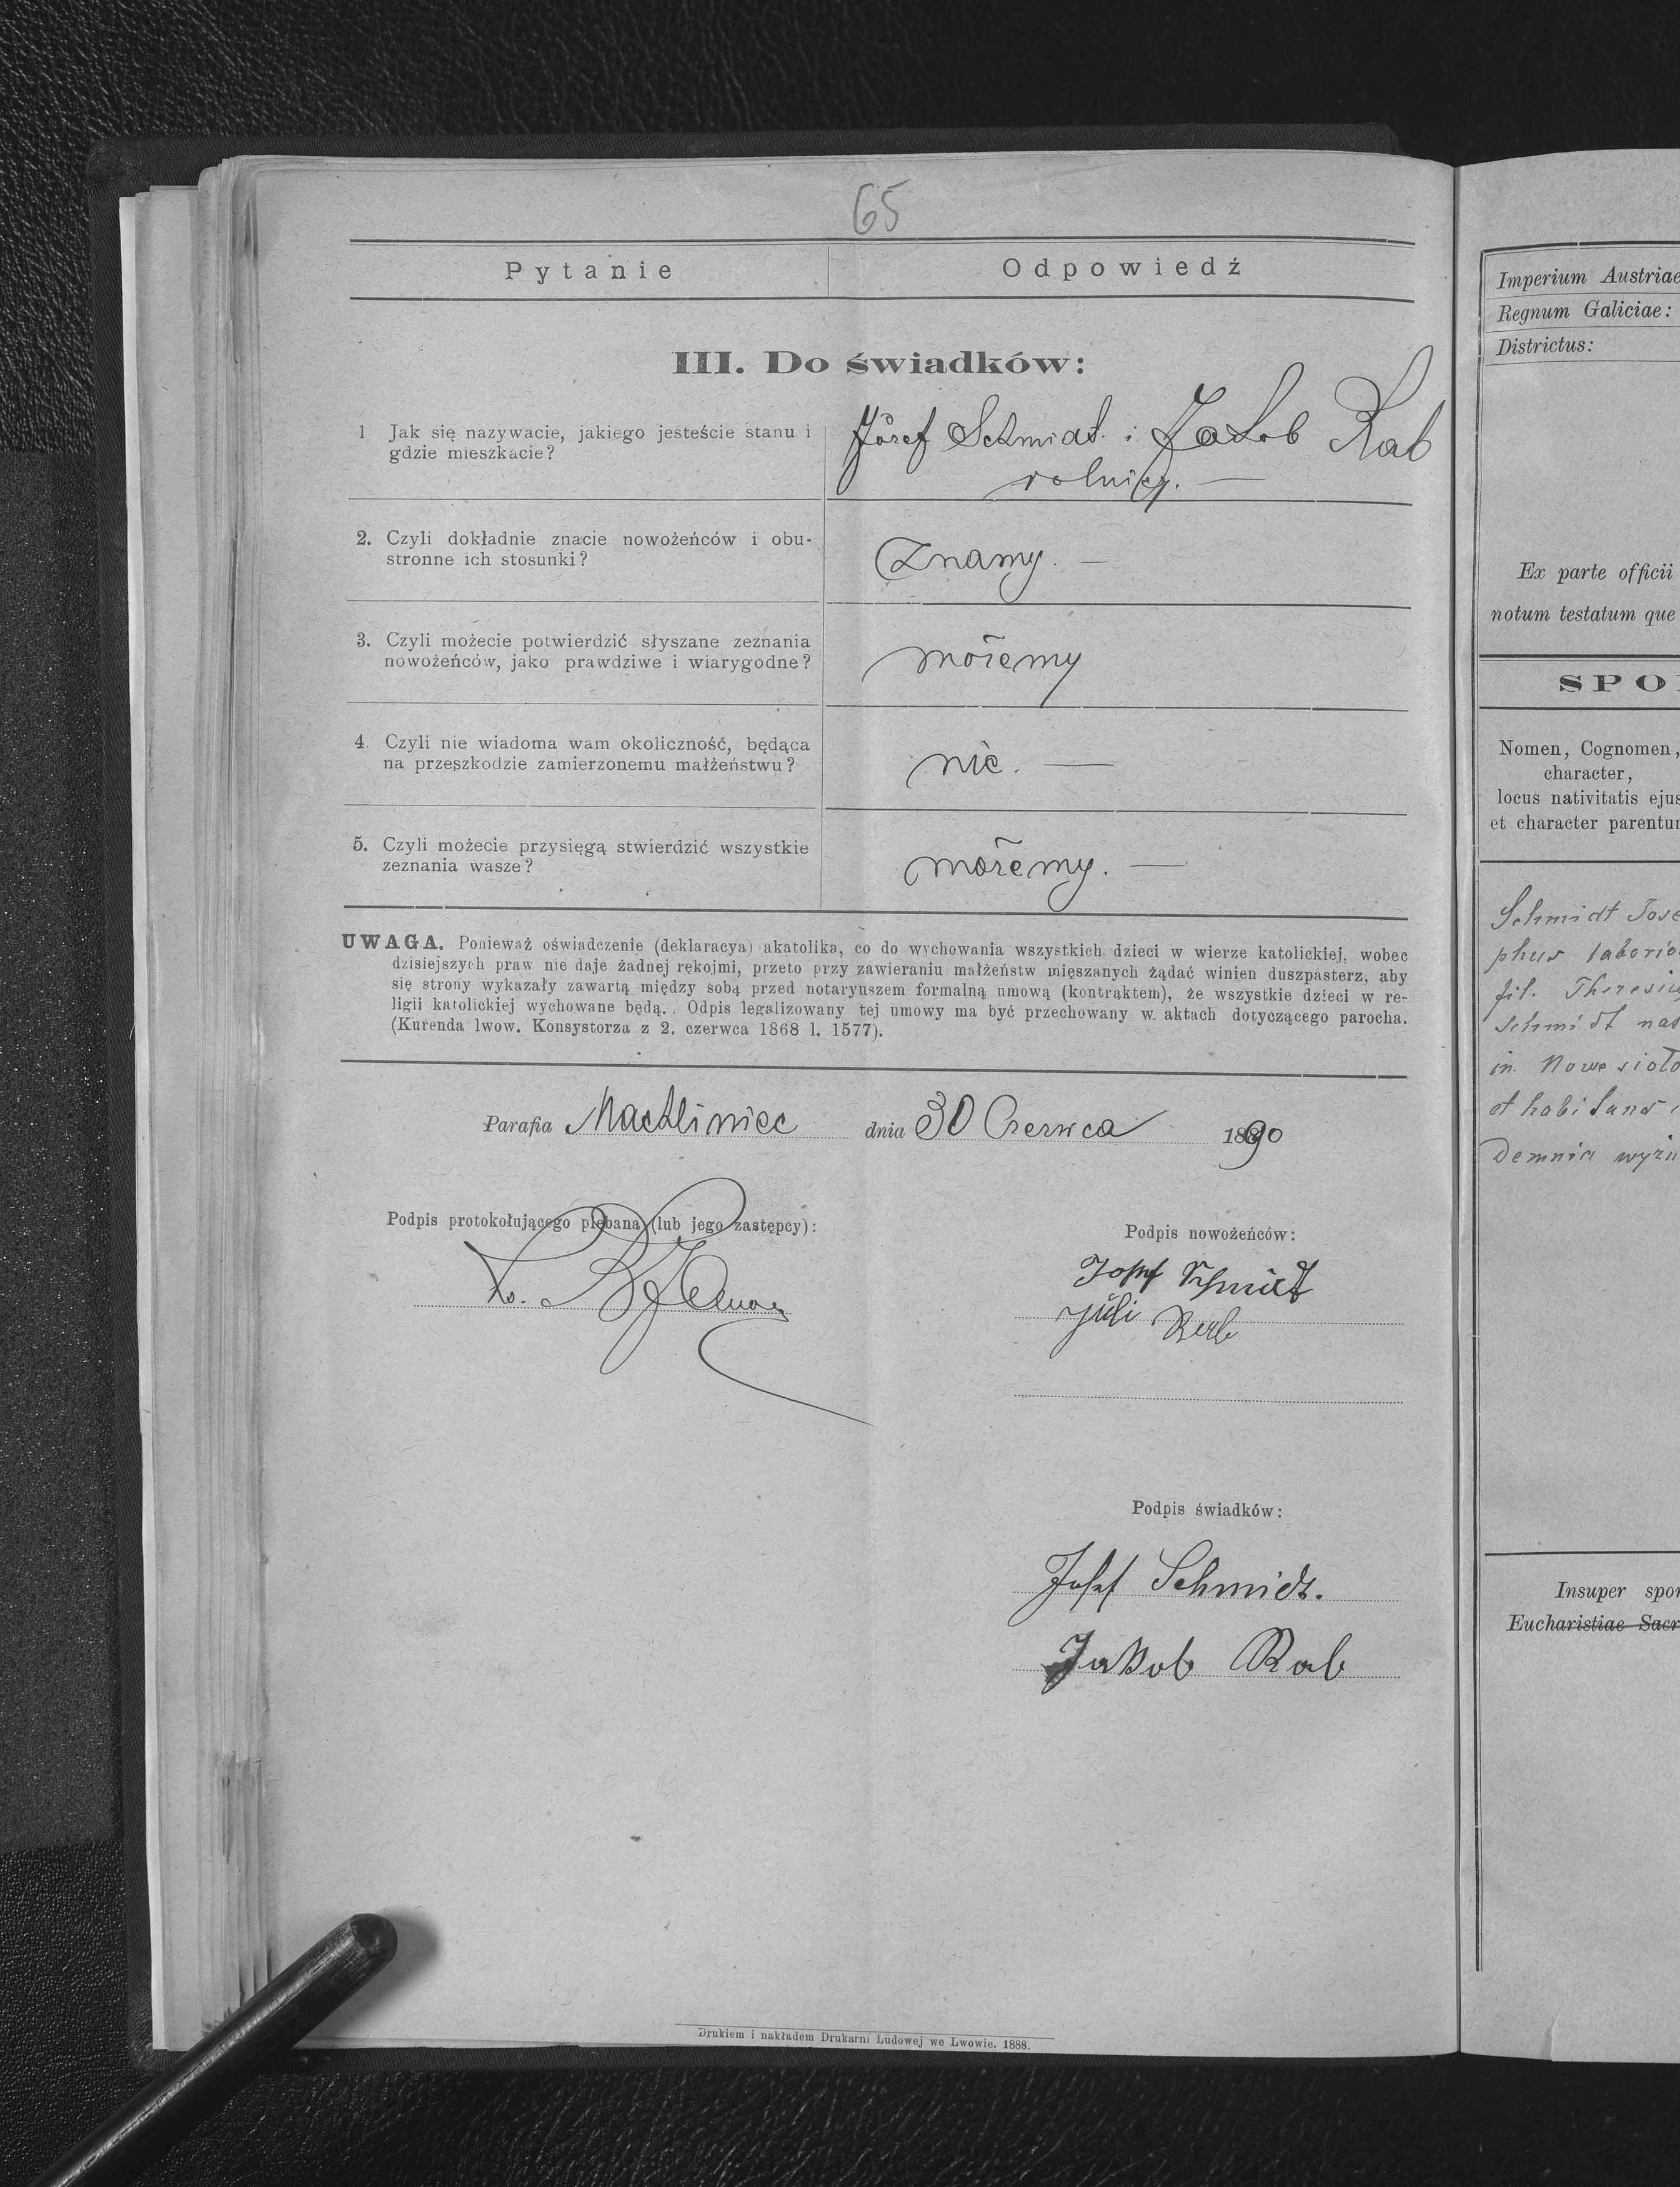 65
Pytanie Odpowiedź
III. Do świadków:
1 Jak się nazywacie, jakiego jesteście stanu i
gdzie mieszkacie?
Józef Schmidt i Jakob Rab
rolnicy. —
2. Czyli dokładnie znacie nowożeńców i obu-
stronne ich stosunki?
znamy. —
3. Czyli możecie potwierdzić słyszane zeznania
nowożeńców, jako prawdziwe i wiarygodne?
możemy
4. Czyli nie wiadoma wam okoliczność, będąca
na przeszkodzie zamierzonemu małżeństwu?
nie. —
5. Czyli możecie przysięgą stwierdzić wszystkie
zeznania wasze?
możemy. —
UWAGA. Ponieważ oświadczenie (deklaracya) akatolika, co do wychowania wszystkich dzieci w wierze katolickiej, wobec
dzisiejszych praw nie daje żadnej rękojmi, przeto przy zawieraniu małżeństw mięszanych żądać winien duszpasterz, aby
się strony wykazały zawartą między sobą przed notaryuszem formalną umową (kontraktem), że wszystkie dzieci w re-
ligii katolickiej wychowane będą. Odpis legalizowany tej umowy ma być przechowany w aktach dotyczącego parocha.
(Kurenda lwow. Konsystorza z 2. czerwca 1868 l. 1577).
Parafia Machliniec dnia 30 Czerwca 1890
Podpis protokołującego plebana (lub jego zastępcy):
Podpis nowożeńców:
Josef Schmidt
Juli
Podpis świadków:
Josef Schmidt.
Jakob Rab
Drukiem i nakładem Drukarni Ludowej we Lwowie. 1888.
Imperium Austriae
Regnum Galiciae:
Districtus:
Ex parte officii
notum testatum que
SPO
Nomen, Cognomen,
character,
locus nativitatis ejus
et character parentum
Schmidt Jose
phus laborio
fil. Theresia
Schmidt nat
in Nowesioło
et habitans
Demnia wyżn
Insuper spon
Eucharistiae Sacr